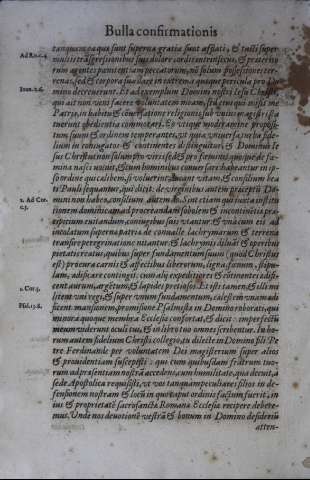 Bulla confirmationis
tanquam ea quæ sunt superna gratia sunt afflati, & tulisuper
multis trãsgressionibus suis dolore cordis intrinsecus, & præterito
Ad Ro. c. 4.
rum agentes pœnitentiam peccatorum, nõ solum possessiones terre
renas, sed & corpora sua dare in extrema quæque pericula pro Do
mino decreuerunt. Et ad exemplum Domini nostri Iesu Christi,
Ioan. c. 6.
qui ait non veni facere voluntatem meam, sed eius qui misit me
Patris, in habitu & conuersatione religionis sub vnius magistri sta
tuerunt obedientia commorari. Eo vtique moderamine proposi
tum suum & ordinem temperantes, vt quia vniuersa multitudo fide
lium in coniugatos & continentes distinguitur, & Dominus Ie
sus Christus non solum pro viris sed & pro fœminis quoque de fœ
mina nasci voluit, & cum hominibus conuersari habeantur in ip
so ordine qui cælibem, si voluerint, ducant vitam, & consilium bea
ti Pauli sequantur, qui dicit: de virginibus autem præceptũ Do
mini non habeo, consilium autem do. Sint etiam qui iuxta institu
2. Ad Cor.
c. 7.
tionem dominicam, ad procreandam sobolem & incontinentiæ præ
cipitium euitandum coniugibus suis vtantur & vna cum eis ad
incolatum supernæ patriæ de conualle lachrymarum & terrena
transire peregrinatione nitantur, & lachrymis diluãt & operibus
pietatis reatus, quibus super fundamentum suum (quod Christus
est) præ cura carnis & affectibus liberorum, ligna, fœnum, stipu-
1. Cor. 3.
lam, ædificare contigerit cum alij expeditiores & continentes ædifi-
cent aurum, argẽtum, & lapides pretiosos. Et isti tamen, & illi mi
litent vni regi, & super vnum fundamentum, cælestem viam ædi
Psal. 138.
ficent mansionem, promissione Psalmistæ in Domino roborati, qui
minora quoque membra Ecclesiæ confortat, & dicit: imperfectũ
meum viderunt oculi tui, & in libro tuo omnes scribentur. In ho-
rum autem fidelium Christi collegio, tu dilecte in Domino fili Pe
tre Ferdinande per voluntatem Dei magisterium super alios
& prouidentiam suscepisti: quæ cum quibusdam fratrum tuo-
rum ad præsentiam nostrã accedens, cum humilitate, qua decuit, à
sede Apostolica requisisti, vt vos tanquam peculiares filios in de-
fensionem nostram & locũ in quo caput ordinis factum fuerit, in
ius & proprietatẽ sacrosanctæ Romanæ Ecclesiæ recipere debere-
mus. Vnde nos deuotionẽ vestrã & bonum in Domino desideriũ
atten-